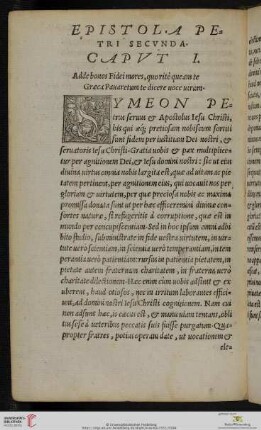 EPISTOLA PE-
TRI SECVNDA.
CAPVT I.
Adde bonos Fidei mores, que
Græca
YMEON PE-
trus seruus & Apostolus Iesu Christi,
his qui æquè pretiosam nobiscum sortiti
sunt fidem per iustitiam Dei nostri, &
seruatoris Iesu Christi. Gratia uobis & pax multiplice-
tur per agnitionem Dei, et Iesu domini nostri: sic ut eius
diuina uirtus omnia nobis largita est, quæ ad uitam ac pie
tatem pertinent, per agnitionem eius, qui uocauit nos per
gloriam & uirtutem, per quæ pretiosa nobis ac maxima
promissa donata sunt ut per hæc efficeremini diuinæ con-
sortes naturæ, si refugeritis à corruptione, quæ est in
mundo per concupiscentiam. Sed in hoc ipsum omni adhi
bito studio, subministrate in fide uestra uirtutem, in uir
tute uerò scientiam, in scientia uerò temperantiam, in tem
perantia uerò patientiam: rursus in patientia pietatem, in
pietate autem fraternam charitatem, in fraterna uerò
charitate dilectionem. Hæc enim cum uobis adsunt & ex
uberent, haud otiosos, nec in irritum laborantes effici
unt, ad domini nostri Iesu Christi cognitionem. Nam cui
non adsunt hæc, is cæcus est, & manu uiam tentans, obli
tus sese à ueteribus peccatis suis fuisse purgatum. Qua-
propter fratres, potius operam date, ut uocationem &
ele-